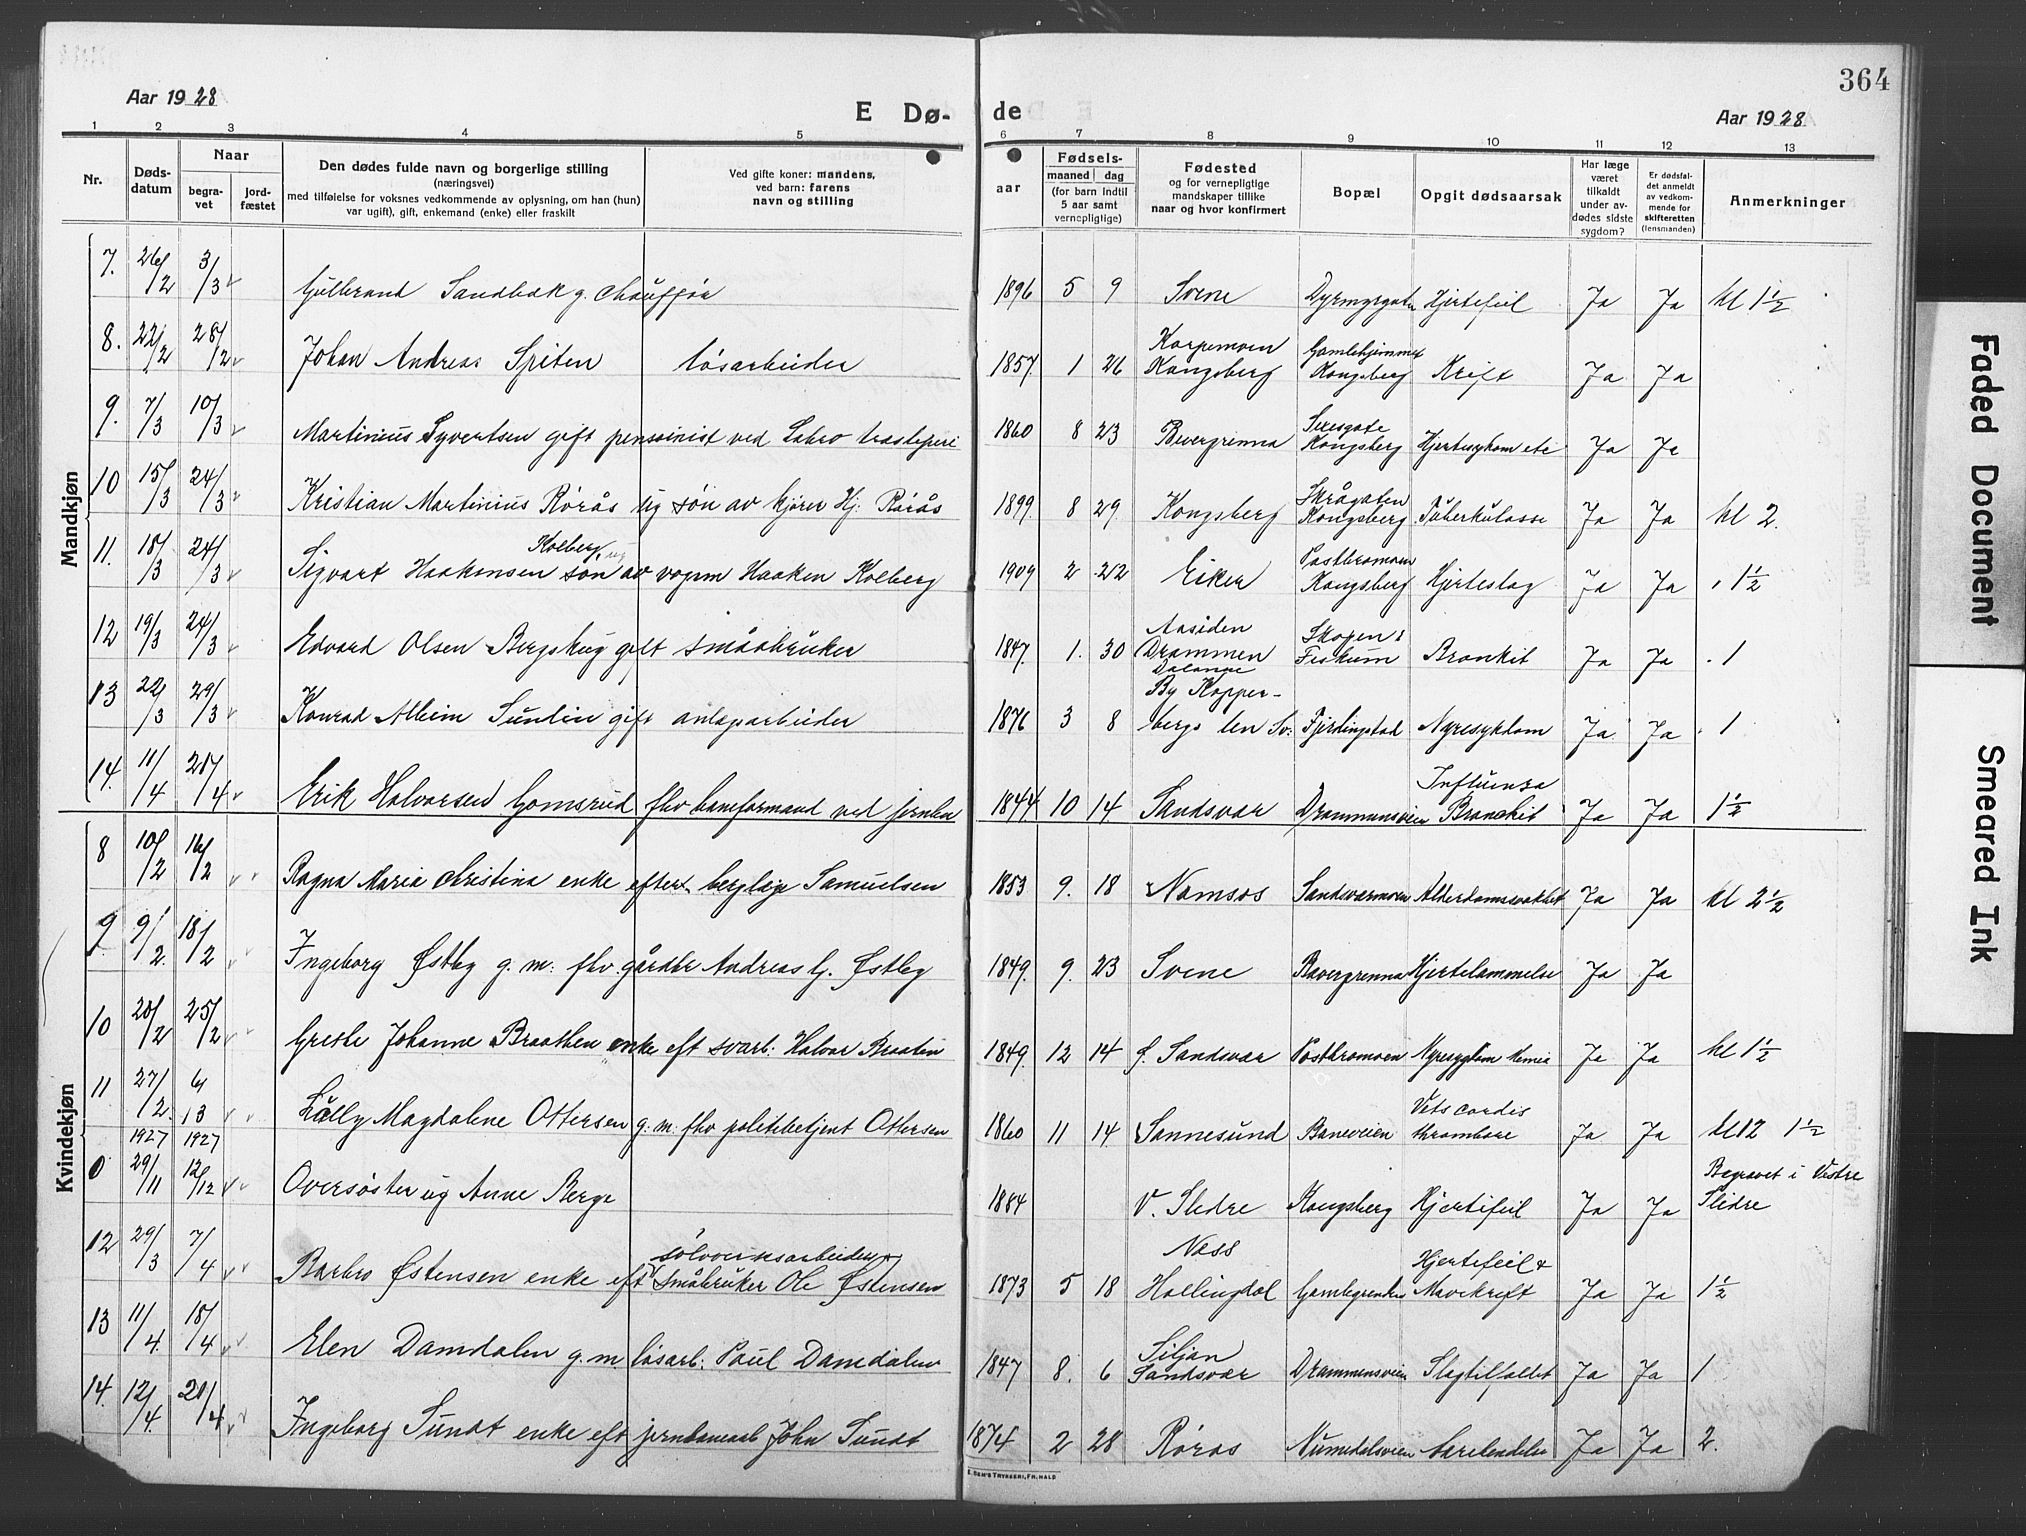 364
Aar 1928
E Dø-
de
Aar 1928
1 2 3 4 5 6 7 8 9 10 11 12 13
Nr.
Døds-
datum
Naar
begra-
vet
jord-
fæstet
Den dødes fulde navn og borgerlige stilling
(næringsvei)
med tilføielse for voksnes vedkommende av oplysning, om han (hun)
var ugift), gift, enkemand (enke) eller fraskilt
Ved gifte koner: mandens,
ved barn: farens
navn og stilling
aar
Fødsels-
maaned dag
(for barn indtil
5 aar samt
vernepligtige)
Fødested
og for vernepligtige
mandskaper tillike
naar og hvor konfirmert
Bopæl
Opgit dødsaarsak
Har læge
været
tilkaldt
under av-
dødes sidste
sygdom?
Er dødsfal-
det anmeldt
av vedkom-
mende for
skifteretten
(lensmanden)
Anmerkninger
Mandkjøn
7. 26/2 3/3 Gulbrand Sandbak g. chauffør 1896 5 9 Svene Dyrmyrgaten Hjertefeil Ja Ja kl 1½
8. 22/2 28/2 Johan Andreas Spiten løsarbeider 1857 1 26 Korpemoen Kongsberg Gamlehjemmet Kongsberg Kreft Ja Ja
9. 7/3 10/3 Martinius Syvertsen gift pensionist ved Labro træsliperi 1860 8 23 Bevergrenna Kongsberg Hjertesykdom etc Ja Ja
10 15/3 24/3 Kristian Martinius Rørås ug søn av kjører Hj: Rørås 1899 8 29 Kongsberg Skrågaten Kongsberg Tuberkulose Ja Ja kl 2.
11. 18/3 24/3 Sigvart Haakensen Kolberg ug søn av vogнm Haaken Kolberg 1909 2 22 Eiker Postbromoen Kongsberg Hjerteslag Ja Ja " 1½
12 19/3 24/3 Edvard Olsen Bergskug gift småabruker 1847 1. 30 Aasiden Drammen Skogen: Fiskum Bronkit Ja Ja " 1
13 22/3 29/3 Konrad Albin Sundin gift anlæparbeider 1876 3 8 By Kopper- bergs len Sv: Fjerdingstad Nyresykdom Ja Ja " 1
14. 11/4 21/4 Erik Halvorsen Gomsrud fhv baneformand ved jernba 1844 10 14 Sandsvær Drammensveien Influensa Bronchit Ja Ja 1½
Kvindekjøn
8 10/2 16/2 Ragna Maria Christina enke efter berglæge Samuelsen 1853 9. 18 Namsos Sandsværmoen Alderdomssvakhet Ja Ja kl 2½
9 9/2 18/2 Ingeborg Østby g. m: fhv gårdbr Andreas G. Østby 1849 9. 23 Svene Bævergrenna Hjertelammelse Ja Ja
10 20/2 25/2 Grethe Johanne Braathen enke eft svarb: Halvor Braaten 1849 12 14 f. Sandsvær Postbromoen Nyresygdom Ja Ja kl 1½
11 27/2 6/3 Lally Magdalene Ottersen g: m: fhv politibetjent Ottersen 1860 11 14 Sannesund Baneveien Vits cordis Ja Ja kl 12 1½
0 1927 29/11 1927 12/12 Oversøster ug Anne Berge 1884 V. Slidre Kongsberg Hjertefeil Ja Ja Begravet i Vestre Slidre
12 29/3 7/4 Barbro Østensen enke eft sølvverksarbeider og småbruker Ole Østensen 1873 5 18 Næss Hallingdal Gamlegrenden Hjertefeil & Mavekreft Ja Ja 1½
13 11/4 18/4 Elen Damdalen g. m. løsarb: Paul Damdalen 1847 8. 6 Siljan Sandsvær Drammensveien Slagtilfældet Ja Ja 1
14. 12/4 21/4 Ingeborg Sundt enke eft jernbanearb John Sundt 1874 2 28 Røros Numedalsveien Ja Ja 2.
E. SEM'S TRYKKERI, FR.HALD
Faded Document
Smeared Ink